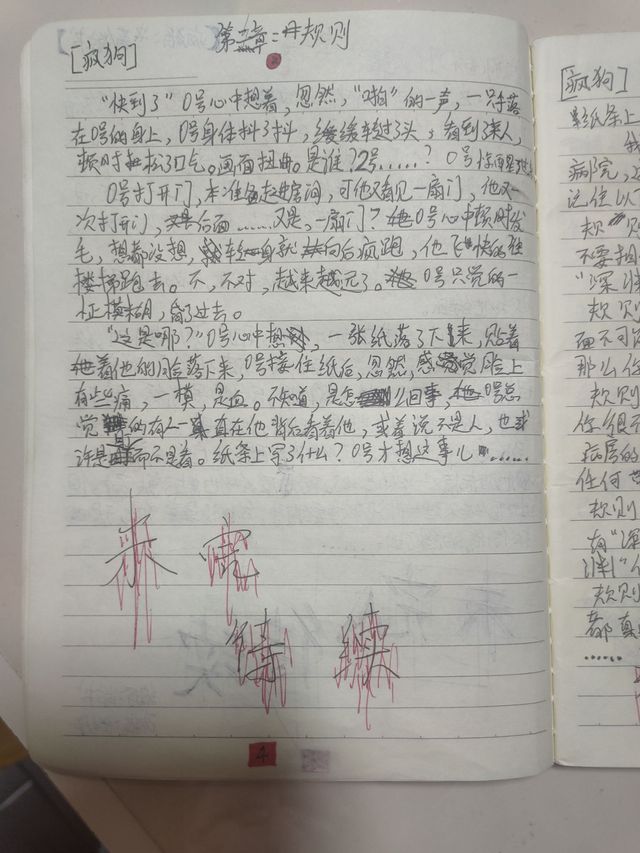 [疯狗]
第二章：规则
“快到了”0号心中想着，忽然，“啪”的一声，一只手落
在0号的身上，0号身体抖了抖，缓缓转过了头，看到了来人，
顿时松了口气。画面扭曲。是谁，72号……？0号
0号打开门，本准备进房间，可他又看见一扇门，他又一
次打开门，后面……又是，一扇门？0号心中顿时发
毛，想都没想，转身就向后疯跑，他飞快的往
楼梯跑去。不，不对，越来越远了。0号只觉的一
阵模糊，昏了过去。
“这是哪？”0号心中想，一张纸落了下来，贴着
着他的脸落下来，0号接住纸后，忽然，感觉脸上
有些痛，一摸，是血。不知道，是怎么回事，0号总
觉的有人一直在他背后看着他，或者说不是人，也或
许是而不是看。纸条上写了什么？0号才想这事儿……
来
4
[疯狗]
纸条上
我
病院，
记住以
规则
不要相
“深渊
规则
而不可
那么你
规则
你很
病房的
任何
规则
有“深
渊”
规则
都真
……